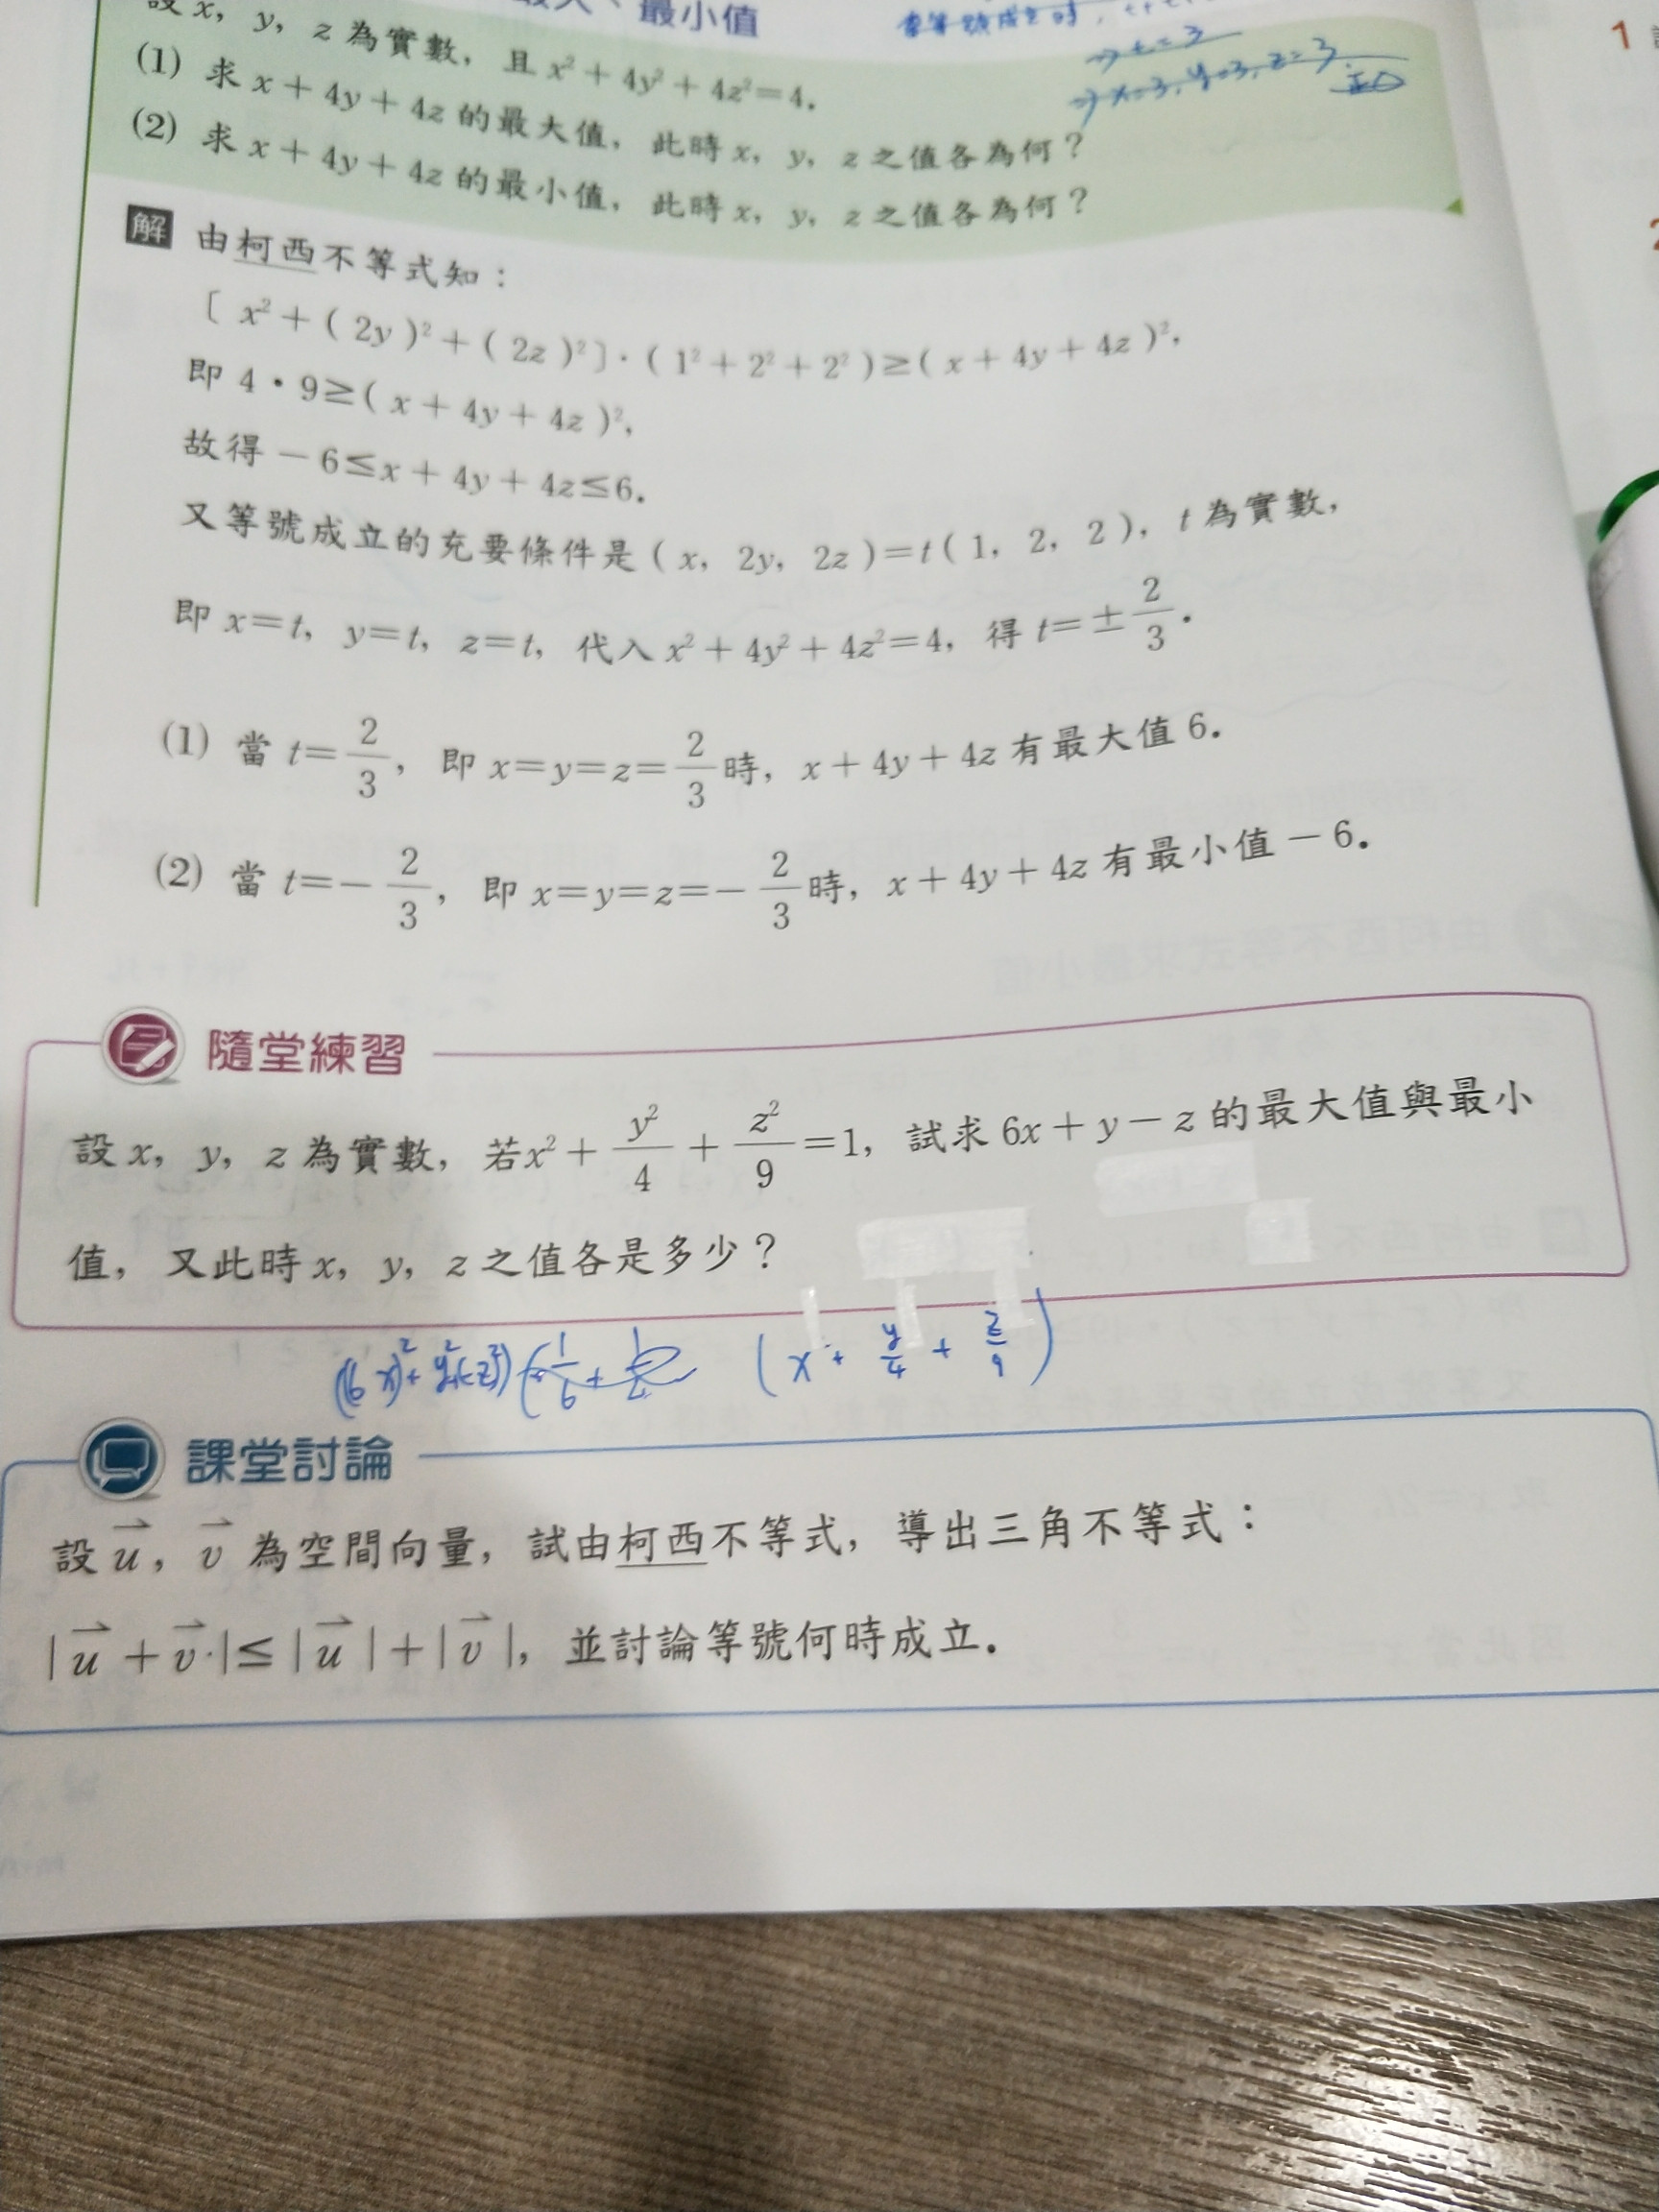 最大、最小值
設 x, y, z 為實數, 且 x²+4y²+4z²=4.
(1) 求 x+4y+4z 的最大值, 此時 x, y, z 之值各為何？
(2) 求 x+4y+4z 的最小值, 此時 x, y, z 之值各為何？
⇒ t=3
⇒ x=3, y=3, z=3.
解 由柯西不等式知：
〔x²+(2y)²+(2z)²〕·(1²+2²+2²)≥(x+4y+4z)²,
即 4·9≥(x+4y+4z)²,
故得 －6≤x+4y+4z≤6.
又等號成立的充要條件是 (x, 2y, 2z)=t(1, 2, 2), t 為實數,
即 x=t, y=t, z=t, 代入 x²+4y²+4z²=4, 得 t=±2/3.
(1) 當 t=2/3, 即 x=y=z=2/3 時, x+4y+4z 有最大值 6.
(2) 當 t=－2/3, 即 x=y=z=－2/3 時, x+4y+4z 有最小值－6.
隨堂練習
設 x, y, z 為實數, 若 x²+y²/4+z²/9=1, 試求 6x+y－z 的最大值與最小
值, 又此時 x, y, z 之值各是多少？
(x+y/4+z/9)
課堂討論
設 u⃗, v⃗ 為空間向量, 試由柯西不等式, 導出三角不等式：
|u⃗+v⃗|≤|u⃗|+|v⃗|, 並討論等號何時成立.
1
2